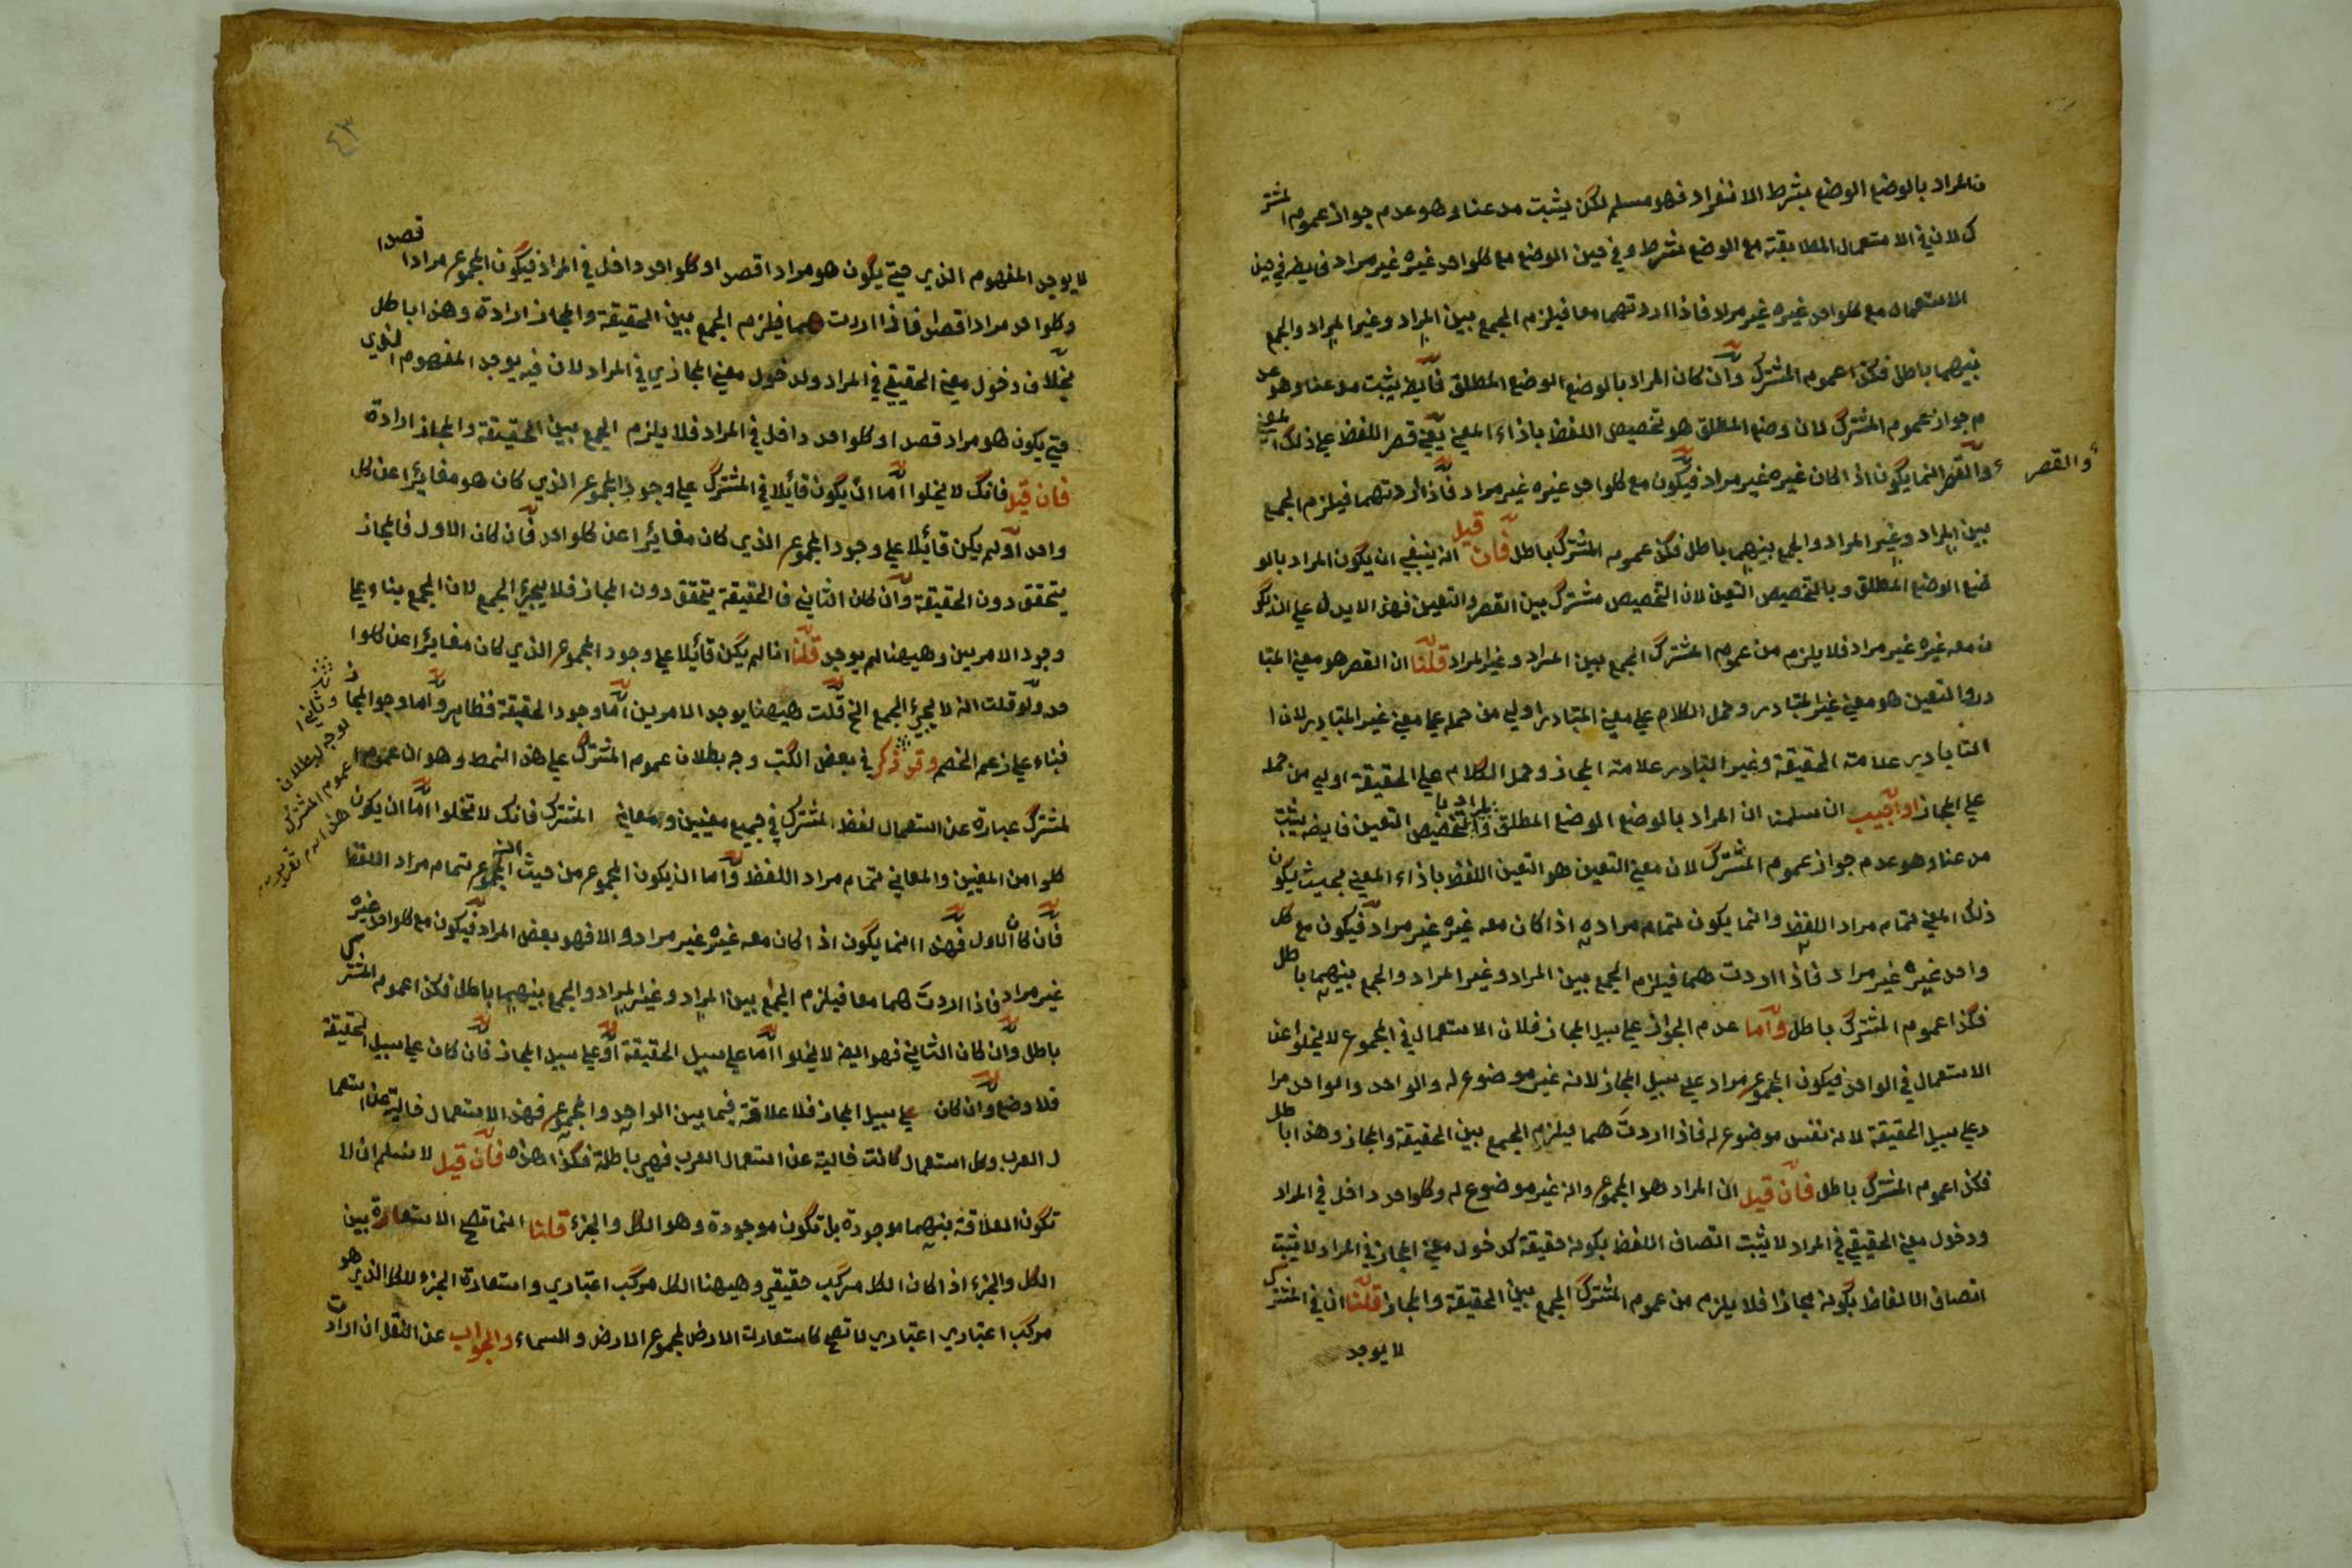 ن المراد بالوضع الوضع بشرط الانفراد فهو مسلم لكن يثبت مدعنا وهو عدم جواز عموم المشتر
ك لان في الاستعمال المطابقة مع الوضع شرط وفي حين الوضع مع كلواحد غيره غير مراد في حين
الاستعمال مع كلواحد غيره غير مراد فاذا اردتهما معا فيلزم الجمع بين المراد وغير المراد والجمع
بينهما باطل فكذا عموم المشترك وان كان المراد بالوضع الوضع المطلق فايض يثبت مدعنا وهو عد
م جواز عموم المشترك لان وضع المطلق هو تخصيص اللفظ باذاء المعني يعني قصر اللفظ علي ذلك المعني
والقصر انما يكون اذا كان غيره غير مراد فيكون مع كلواحد غيره غير مراد فاذا اردتهما فيلزم الجمع
والقصر
بين المراد وغير المراد والجمع بينهما باطل فكذا عموم المشترك باطل فان قيل انه ينبغي ان يكون المراد بالو
ضع الوضع المطلق وبالتخصيص التعين لان التخصيص مشترك بين القصر والتعين فهذا لا يدل علي انه يكو
ن معه غيره غير مراد فلا يلزم من عموم المشترك الجمع بين المراد وغير المراد قلنا ان القصر هو معني المتبا
در والتعين هو معني غير المتبادر وحمل الكلام علي معني المتبادر اولي من حمله علي معني غير المتبادر لان ا
لتابادير علامة الحقيقة وغير التبادر علامة المجاز وحمل الكلام علي الحقيقة اولي من حمله
علي المجاز او اجيب ان سلمنا ان المراد بالوضع الوضع المطلق والمراد با لتخصيص التعين فايضه يثبت
مدعنا وهو عدم جواز عموم المشترك لان معني التعين هو التعين اللفظ باذاء المعني بحيث يكون
ذلك المعني تمام مراد اللفظ وانما يكون تمام مراده اذا كان معه غيره غير مراد فيكون مع كل
واحد غيره غير مراد فاذا اردت هما فيلزم الجمع بين المراد وغير المراد والجمع بينهما باطل
فكذا عموم المشترك باطل واما عدم الجواز علي سبيل المجاز فلان الاستعمال في المجموع لا يخلوا عن
الاستعمال في الواحد فيكون المجموع مراد علي سبيل المجاز لانه غير موضوع له والواحد والواحد مرا
د علي سبيل الحقيقة لانه نفس موضوع له فاذا اردت هما فيلزم الجمع بين الحقيقة والمجاز وهذا باطل
فكذا عموم المشترك باطل فان قيل ان المراد هو المجموع وانه غير موضوع له وكلواحد داخل في المراد
ودخول معني الحقيقي في المراد لا يثبت اتصاف اللفظ بكونه حقيقة كدخول معني المجاز في المراد لا يثبت
اتصاف الالفاظ بكونه مجازا فلا يلزم من عموم المشترك الجمع بين الحقيقة والمجاز قلنا ان في المشترك
لا يوجد
٤٣
لا يوجد المفهوم الذي حتي يكون هو مراد اقصدا وكلواحد داخل في المراد فيكون المجموع مرادا قصدا
وكلواحد مرادا قصدا فاذا اردت هما فيلزم الجمع بين الحقيقة والمجاز ارادة وهذا باطل
بخلاف دخول معني الحقيقي في المراد ولدخول معني المجازي في المراد لان فيه يوجد المفهوم الذي
حتي يكون هو مراد قصدا وكلواحد داخل في المراد فلا يلزم الجمع بين الحقيقة والمجاز ارادة
فان قيل فانك لا يخلوا اما ان يكون قائيلا في المشترك علي وجود المجموع الذي كان هو مغايرا عن كل
واحد او لم يكن قائيلا علي وجود المجموع الذي كان مغائرا عن كلواحد فان كان الاول فالمجاز
يتحقق دون الحقيقة وان كان الثاني فالحقيقة يتحقق دون المجاز فلا يجئ الجمع لان الجمع بناء علي
وجود الامرين وهيهنا لم يوجد قلنا انا لم يكن قائيلا علي وجود المجموع الذي كان مغايرا عن كلوا
حد ولو قلت انه لا يجئ الجمع الخ قلت هيهنا يوجد الامرين اما وجود الحقيقة فظاهر واما وجود المجاز
فبناء علي زعم الخصم وقد ذكر في بعض الكتب وجه بطلان عموم المشترك علي هذا النمط وهو ان عموم ا
لمشترك عبارة عن استعمال لفظ المشترك في جميع معنيين ومعاني المشترك فانك لا تخلوا اما ان يكون
كلوا من المعنيين والمعاني تمام مراد اللفظ واما ان يكون المجموع من حيث انه المجموع تمام مراد اللفظ
فان كان الاول فهذا انما يكون اذا كان معه غيره غير مراد والا فهو بعض المراد فيكون مع كلواحد غيره
غير مراد فاذا اردت هما معا فيلزم الجمع بين المراد وغير المراد والجمع بينهما باطل فكذا عموم المشترك
باطل وان كان الثاني فهو ايض لا يخلوا اما علي سبيل الحقيقة او علي سبيل المجاز فان كان علي سبيل الحقيقة
فلا وضع وان كان علي سبيل المجاز فلا علاقة فيما بين الواحد والمجموع فهذا الاستعمال خالية عن استعما
ل العرب وكل استعمال كانت خالية عن استعمال العرب فهي باطلة فكذا هذه فان قيل لا نسلم ان لا
تكون العلاقة بينهما موجودة بل تكون موجودة وهو الكل والجزء قلنا انما تصح الاستعارة بين
الكل والجزء اذا كان الكل مركب حقيقي وهيهنا الكل مركب اعتباري واستعارة الجزء للكل الذي هو
مركب اعتباري اعتباري لا تصح كاستعارات الارض لمجموع الارض والسماء والجواب عن النقل ان اراد
وثانيها
لوجه لبطلان
عموم المشترك